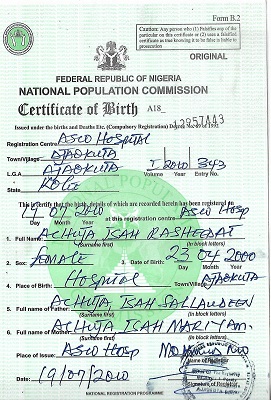 Form B.2
Caution: Any person who (1) Falsifies any of the particular on this certificate or (2) uses a falsified certificate as true knowing it to be false is liable to prosecution
ORIGINAL
FEDERAL REPUBLIC OF NIGERIA
NATIONAL POPULATION COMMISSION
Certificate of Birth A18
Issued under the births and Deaths Etc. (Compulsory Registration) Decree 69 of 1992
Registration Centre ASCO HOSPITAL
Town/Village AJAOKUTA
L.G.A AJAOKUTA I 2010 343
Volume Year Entry No.
State KOGI
This certify that the birth, details of which are recorded herein has been registered to
19 09 2010 at this registration centre ASCO HOSP
Day Month Year
1. Full Name: ACHUJA ISAH RASHEEDAT
(Surname first) (In block letters)
2. Sex: FEMALE 3. Date of Birth: 23 04 2000
Day Month Year
4. Place of Birth: Hospital Town/Village AJAOKUTA
5. Full Name of Father: ACHUJA ISAH SALLAUDEEN
(Surname first) (In block letters)
6. Full Name of Mother: ACHUJA ISAH MARIYAM.
(Surname first) (In block letters)
Place of Issue: ASCO HOSP
Name of Registrar
Date: 19/09/2010
Signature of Registrar
NATIONAL REGISTRATION PROGRAMME